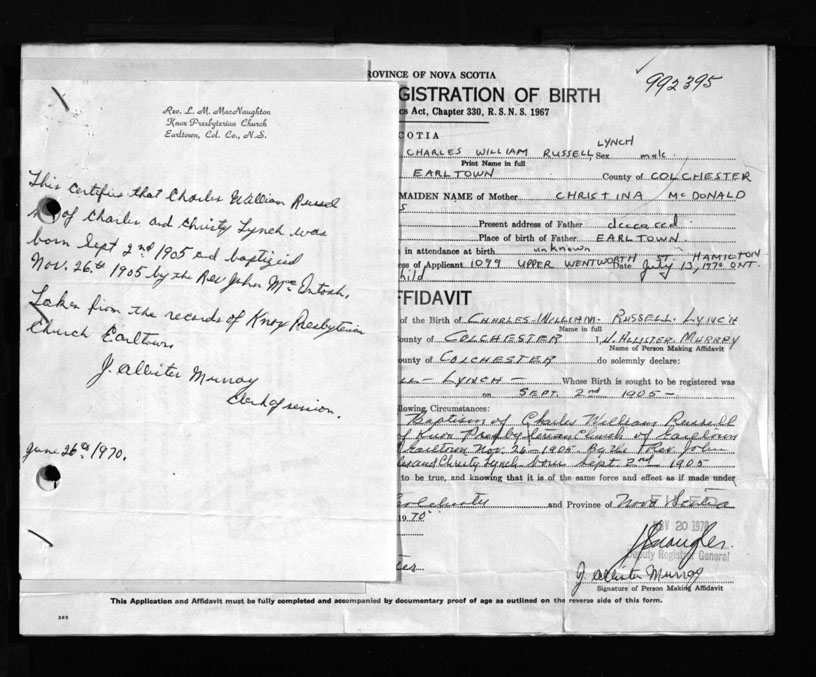 Rev. L. M. MacNaughton
Knox Presbyterian Church
Earltown, Col. Co., N.S.
This certifies that Charles William Russel
of Charles and Christy Lynch was
born Sept 2nd 1905 and baptized
Nov. 26th 1905 by the Rev John McIntosh,
Taken from the records of Knox Presbyterian
Church Earltown
J. Allister Murray
Clerk of session.
June 26th 1970.
ROVINCE OF NOVA SCOTIA
992395
GISTRATION OF BIRTH
cs Act, Chapter 330, R. S. N. S. 1967
COTIA
CHARLES WILLIAM RUSSELL LYNCH Sex male
Print Name in full
EARLTOWN County of COLCHESTER
MAIDEN NAME of Mother CHRISTINA McDONALD
S
Present address of Father deceased
Place of birth of Father EARLTOWN
in attendance at birth unknown
ress of Applicant 1099 UPPER WENTWORTH ST. HAMILTON
hild Date July 13, 1970 ONT.
FFIDAVIT
of the Birth of CHARLES-WILLIAM-RUSSELL-LYNCH
Name in full
ounty of COLCHESTER I, J. ALLISTER MURRAY
Name of Person Making Affidavit
ounty of COLCHESTER do solemnly declare:
LL-LYNCH- Whose Birth is sought to be registered was
on SEPT. 2nd 1905-
llowing Circumstances:
Baptism of Charles William Russell
of Knox Presbyterian Church of Earltown
Earltown Nov. 26-1905 By the Rev. John
les and Christy Lynch born Sept 2nd 1905
to be true, and knowing that it is of the same force and effect as if made under
Colchester and Province of Nova Scotia
1970
FILED
20 1970
Deputy Registrar General
J. Allister Murray
Signature of Person Making Affidavit
This Application and Affidavit must be fully completed and accompanied by documentary proof of age as outlined on the reverse side of this form.